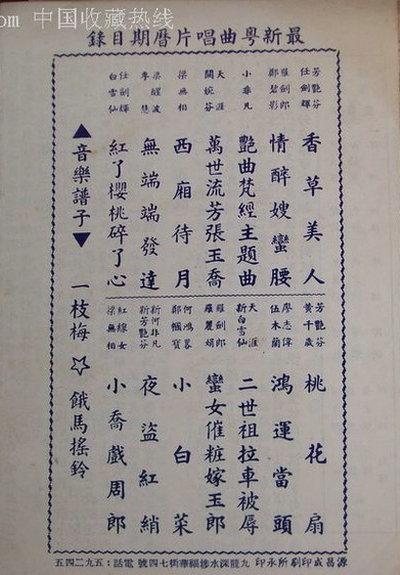 中国收藏热线
最新粵曲唱片曆期目錄
芳艷芬
任劍輝
香草美人
羅劍郎
鄭碧影
情醉嫂蠻腰
艷曲梵經主題曲
天涯
關婉芬
萬世流芳張玉喬
梁無相
西廂待月
梁醒波
李慧
無端端發達
任劍輝
白雪仙
紅了櫻桃碎了心
芳艷芬
黃千歲
桃花扇
廖志偉
伍木蘭
鴻運當頭
天涯
新白雪仙
二世祖拉車被辱
羅劍郎
羅麗娟
蠻女催粧嫁玉郎
鄭幗寶
小白菜
新何非凡
新芳艷芬
夜盜紅綃
紅線女
梁無相
小喬戲周郎
▲音樂譜子▼ 一枝梅 ☆ 餓馬搖鈴
源昌成印刷所承印 九龍深水埗福華街七四號 電話：五九二四五